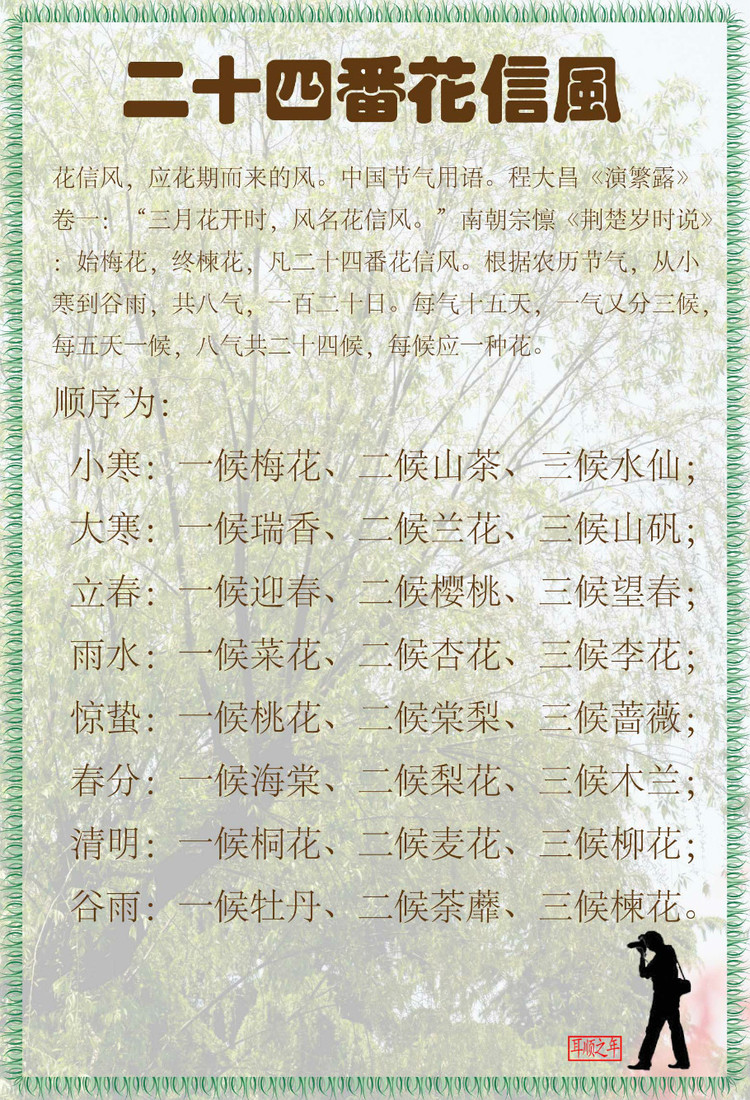 二十四番花信風
花信风，应花期而来的风。中国节气用语。程大昌《演繁露》
卷一：“三月花开时，风名花信风。”南朝宗懔《荆楚岁时说》
：始梅花，终楝花，凡二十四番花信风。根据农历节气，从小
寒到谷雨，共八气，一百二十日。每气十五天，一气又分三候，
每五天一候，八气共二十四候，每候应一种花。
顺序为：
小寒：一候梅花、二候山茶、三候水仙；
大寒：一候瑞香、二候兰花、三候山矾；
立春：一候迎春、二候樱桃、三候望春；
雨水：一候菜花、二候杏花、三候李花；
惊蛰：一候桃花、二候棠梨、三候蔷薇；
春分：一候海棠、二候梨花、三候木兰；
清明：一候桐花、二候麦花、三候柳花；
谷雨：一候牡丹、二候荼蘼、三候楝花。
耳顺之年